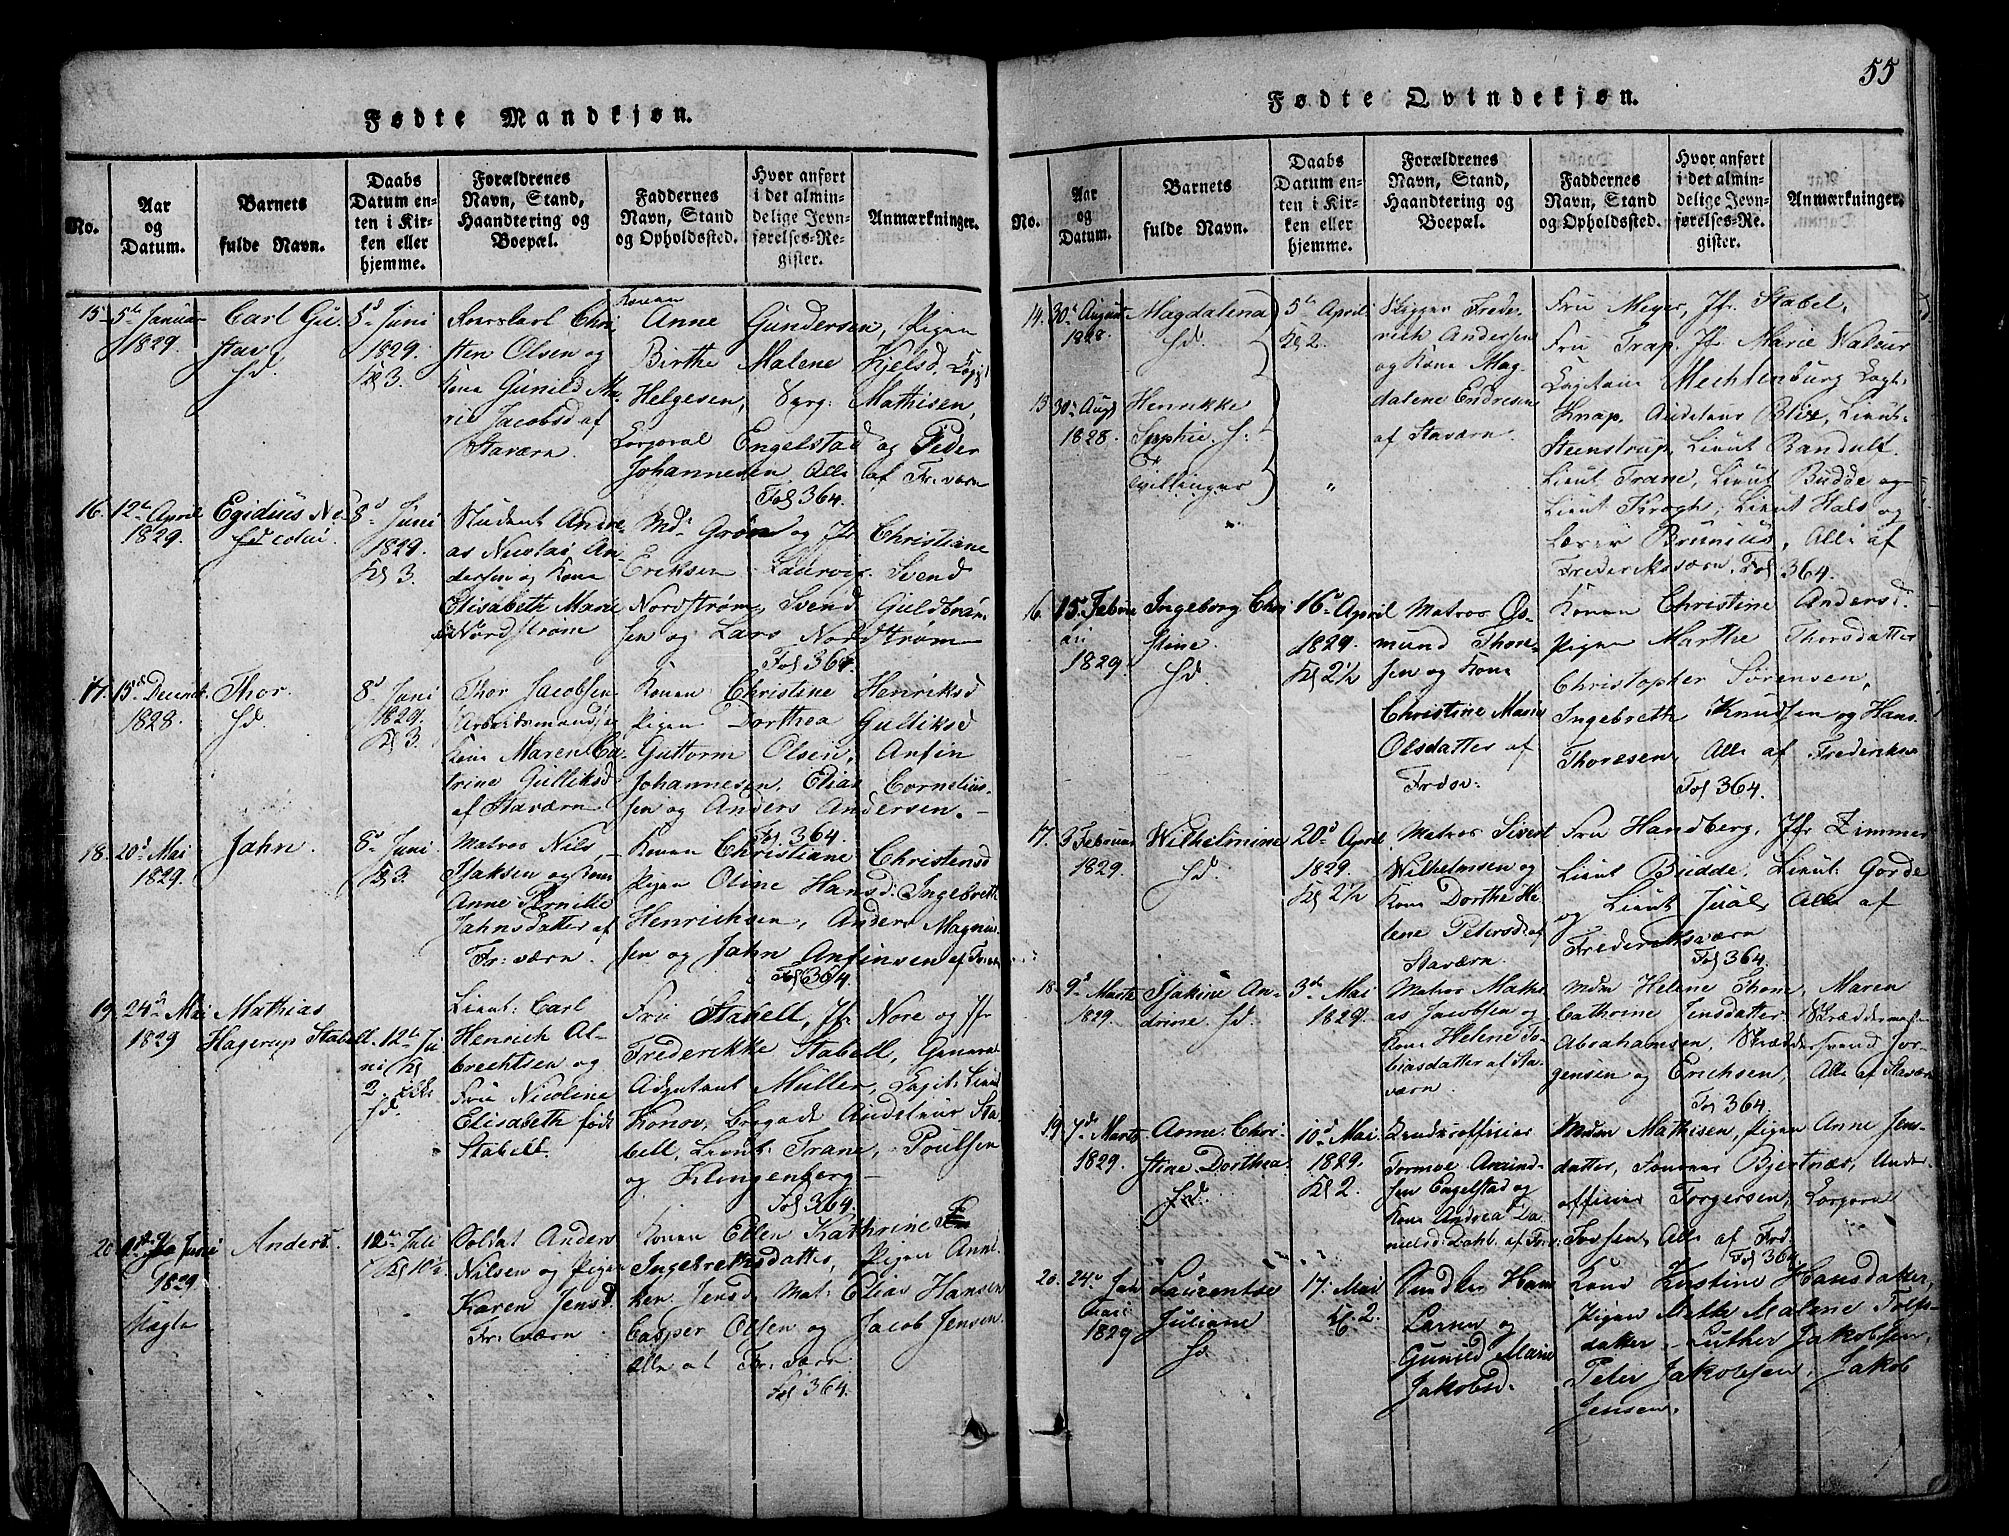 55
Fødte Mandkjøn.
No.
Aar
og
Datum.
Barnets
fulde Navn.
Daabs
Datum en-
ten i Kir-
ken eller
hjemme.
Forældrenes
Navn, Stand,
Haandtering og
Boepæl.
Faddernes
Navn, Stand
og Opholdssted.
Hvor anført
i det almin-
delige Jevn-
førelses-Re-
gister.
Anmærkninger.
15
5te Januar
1829.
Carl Gu-
stav
Hd
8d Juni
1829.
Kl 3.
Chri
sten Olsen og
Kone Gunild Ma-
rie Jacobsd af
Staværn.
Konen
Anne Gundersen, Pigen
Birthe Malene Kjelsd.
Helgesen, Mathisen,
Corporal Engelstad og Peder
Johannesen Alle af Fr:værn
Fol 364.
16.
12te April
1829.
Egidius Ni-
colai
Hd
8d Juni
1829.
Kl 3.
Student Andre-
as Nicolai An-
dersen og Kone
Elisabeth Marie
Nordstrøm
Md. Grøn og Jfr Christiane
Eriksen Laurvig. Svend
Nordstrøm, Svend Guldbran-
sen og Lars Nordstrøm
Fol 364.
17.
15d Decemb.
1828.
Thor.
Hd
8d Juni
1829.
Kl 3.
Thor Jacobsen
Arbeidsmand, og
Kone Maren Ca-
trine Gulliksd
af Staværn.
Konen Christine Henriksd
Pigen Dorthea Gulliksd
Guttorm Olsen, Anfin
Johannesen, Elias Cornelius-
sen og Anders Andersen.
Fol 364.
18.
20d Mai
1829.
Jahn.
8d Juni
Kl 3.
Matros Nils
Isaksen og Kone
Anne Pernille
Jahnsdatter af
Fr: værn.
Konen Christiane Christensd
Pigen Oline Hansd: Ingebreth
Henrichsen, Anders Magnus-
sen og Jahn Anfinsen af
Fol 364.
19.
24d Mai
1829
Mathias
Hagerup Stabell
d. 12te Ju-
ni Kl
2.
Hd.
Lieut: Carl
Henrich Al-
brechtsen og
Fru Nicoline
Elisabeth født
Stabell.
Fru Stabell, Jfr. Nore og Jfr
Frederikke Stabell, General
Adjutant Müller, Capit: Lieut
Konow, Brigade Auditeur Sta-
bell, Lieut. Trane, Poulsen
og Klingenberg
Fol 364.
20
Juni
1829
Anders.
12te Juli
Kl 10½
Soldat Anders
Nilsen og Pigen
Karen Jensd.
Fr: værn.
Konen Ellen Kathrine
Ingebrethsdatter, Pigen Anne
Jensd, Mat: Elias Hansen
Casper Olsen og Jacob Jensen
alle af Fr: værn
Fol 364.
Fødte Qvindekjøn.
No.
Aar
og
Datum.
Barnets
fulde Navn.
Daabs
Datum en-
ten i Kir-
ken eller
hjemme.
Forældrenes
Navn, Stand,
Haandtering og
Boepæl.
Faddernes
Navn, Stand
og Opholdssted.
Hvor anført
i det almin-
delige Jevn-
førelses-Re-
gister.
Anmærkninger.
14.
30te August
1828.
Magdalena
Hd.
5te April
Kl 2.
Skipper Frede-
rich Andersen
og Kone Mag-
dalene Endresen
af Staværn.
Fru Meyer, Jfr. Stabel,
Fru Trap, Jfr. Marie Waluer
Capitain Mechlenburg Capt:
Knap, Auditeur Blix, Lieut:
Steenstrup, Lieut Bandulf
Lieut Trane, Lieut Budde og
Lieut Krogh, Lieut Hals og
Læser Brunius, Alle af
Frederiksværn. Fol 364.
15
30te Aug.
1828.
Henrikke
Sophie. H:
Tvillinger
"
16.
15. Febru-
ari
1829.
Ingeborg Chri-
stine.
Hd.
16de April
1829.
Kl 2½
Matros Os-
mund Thore-
sen og Kone
Christine Marie
Olsdatter af
Frdsv.
Konen Christine Andersd.
Pigen Marthe Thorsdatter
Christopher Sørensen,
Ingebreth Knudsen og Hans
Thoresen, Alle af Frederiksv
Fol 364.
17.
3 Februar
1829.
Wilhelmine
Hd.
20d April
1829.
Kl 2½
Matros Sivert
Wilhelmsen og
Kone Dorthe He-
lene Petersd: af
Staværn.
Fru Handberg, Jfr Zimmer
Lieut Budde, Lieut: Gorde
og Lieut Juul, Alle af
Frederiksværn
Fol 364.
18.
9d Marts
1829.
Isakine An-
drine. Hd.
3de Mai
1829.
Matros Mathi-
as Jacobsen og
Kone Helene To-
biasdatter af Sta-
værn.
Mdm Helene Thom, Maren
Cathrine Jensdatter Skræddermest:
Abrahamsen, Skræddersvend Jør-
gensen og Erichsen, Alle af Staværn
Fol 364.
19
7de Marts
1829.
Anne Chri-
stine Dorthea.
Hd.
10d Mai
1829.
Kl 2.
Underofficier
Tormoe Amund-
sen Engelstad og
Kone Andrea Da-
nielsd: Dahl af Frv:
Mdm Mathisen, Pigen Anne Jens-
datter, Bjertnæs, Under-
officier Torgersen, Corporal
Alle af Frd.
Fol 364
20.
24de Jan-
uari
1829
Laurentse
Juliane
Hd
17. Mai
Kl. 2.
Larsen og
Gunild Marie
Jakobsd.
Kone Kirstine Hansdatter,
Pigen Mette Malene Tolfs-
datter, Luther Jakobsen,
Peter Jakobsen, Jakob
Jensen.